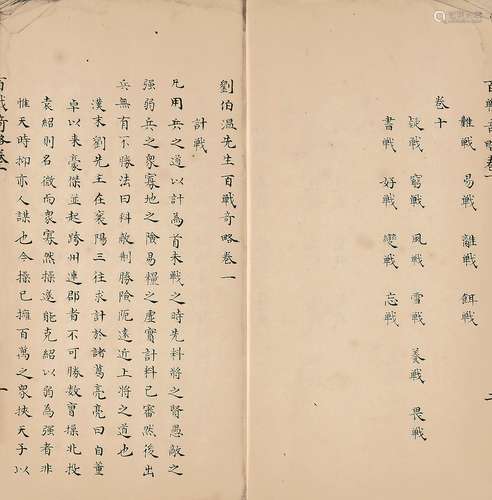 難戰 易戰 離戰 餌戰
卷十
疑戰 窮戰 風戰 雪戰 養戰 畏戰
書戰 好戰 變戰 忘戰
劉伯溫先生百戰奇略卷一
計戰
凡用兵之道以計為首未戰之時先料將之賢愚敵之
强弱兵之衆寡地之險易糧之虛實計料已審然後出
兵無有不勝法曰料敵制勝險阨遠近上將之道也
漢末劉先主在襄陽三往求計於諸葛亮亮曰自董
卓以来豪傑並起跨州連郡者不可勝數曹操比於
袁紹則名微而衆寡然操遂能克紹以弱為强者非
惟天時抑亦人謀也今操已擁百萬之衆挾天子以
百戰奇略卷一
一